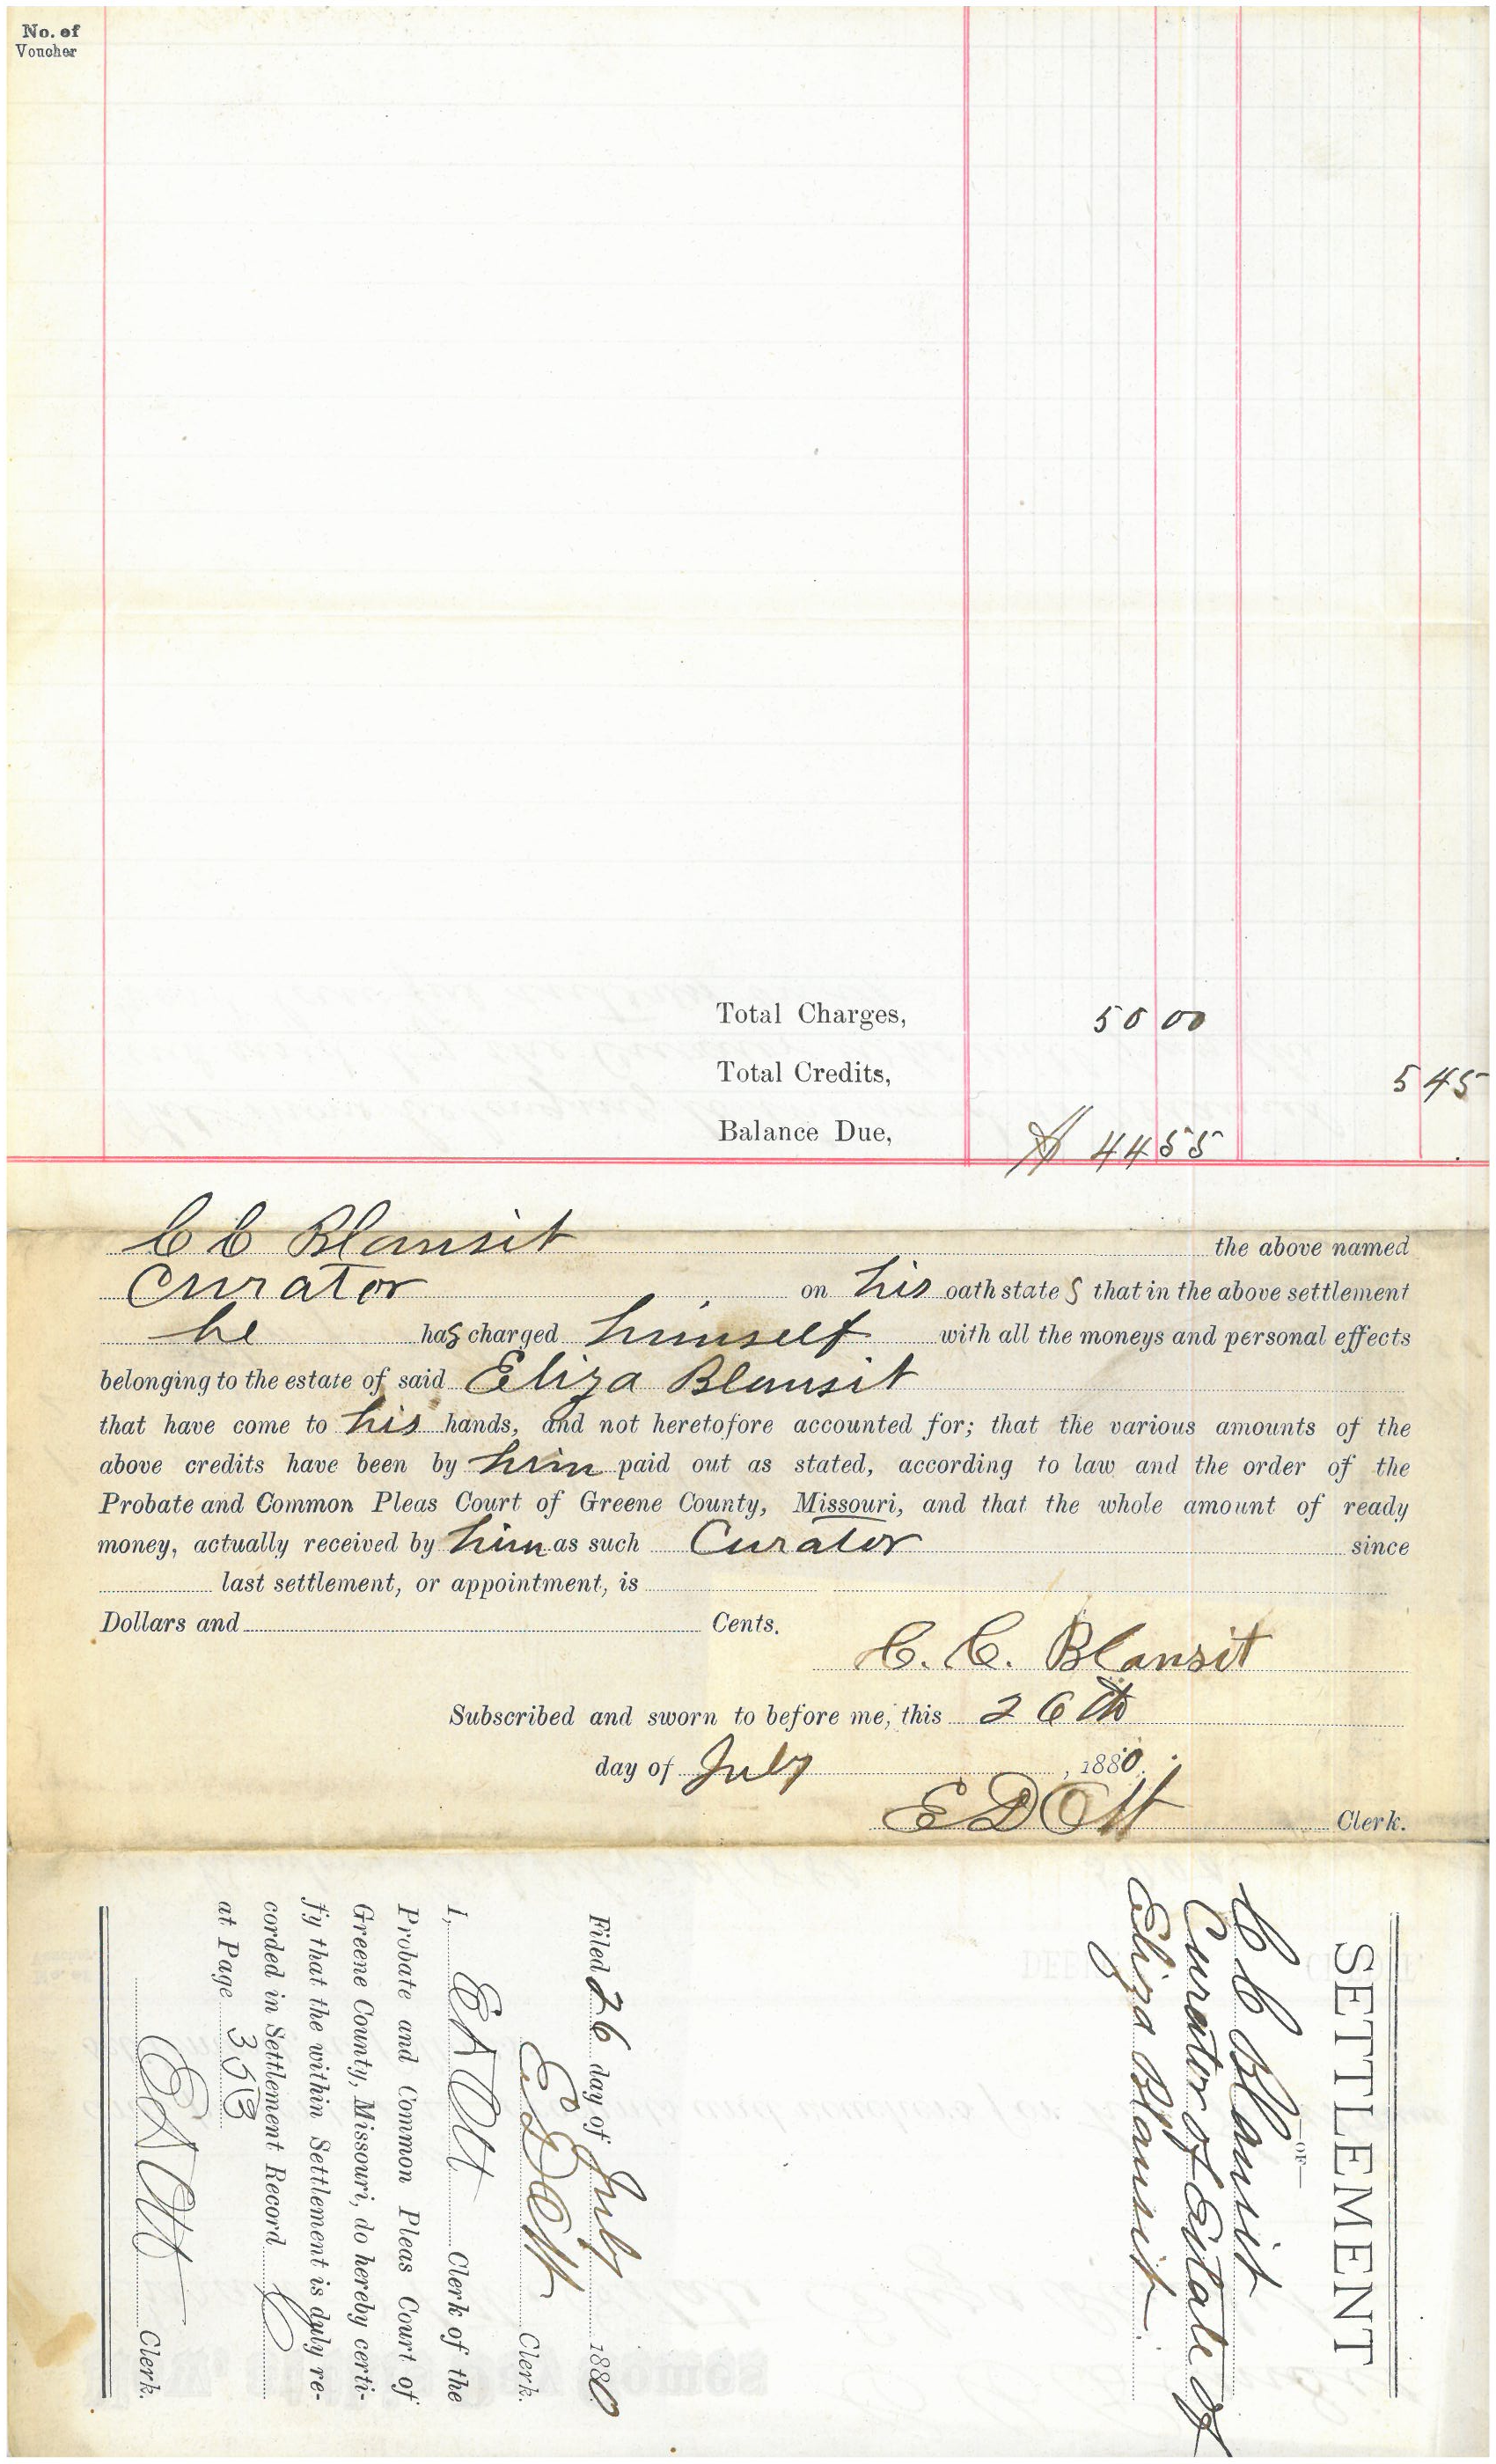 No. of
Voucher
Total Charges, 50 00
Total Credits, 5 45
Balance Due, $ 44 55
C C Blansit the above named
Curator on his oath states that in the above settlement
he has charged himself with all the moneys and personal effects
belonging to the estate of said Eliza Blansit
that have come to his hands, and not heretofore accounted for; that the various amounts of the
above credits have been by him paid out as stated, according to law and the order of the
Probate and Common Pleas Court of Greene County, Missouri, and that the whole amount of ready
money, actually received by him as such Curator since
last settlement, or appointment, is
Dollars and Cents.
C. C. Blansit
Subscribed and sworn to before me, this 26th
day of July, 1880.
E D Ott Clerk.
SETTLEMENT
—OF—
C C Blansit
Curator of Estate of
Eliza Blansit
Filed 26 day of July 1880
E D Ott Clerk.
I, E A Ott Clerk of the
Probate and Common Pleas Court of
Greene County, Missouri, do hereby certi-
fy that the within Settlement is duly re-
corded in Settlement Record
at Page
E A Ott Clerk.